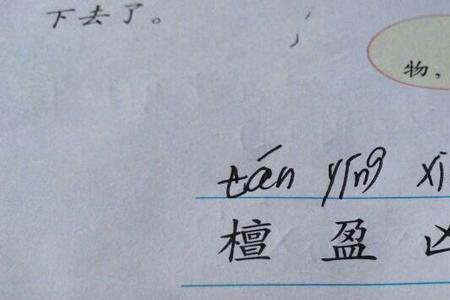 下去了。
物，
tán yíng xi
檀 盈